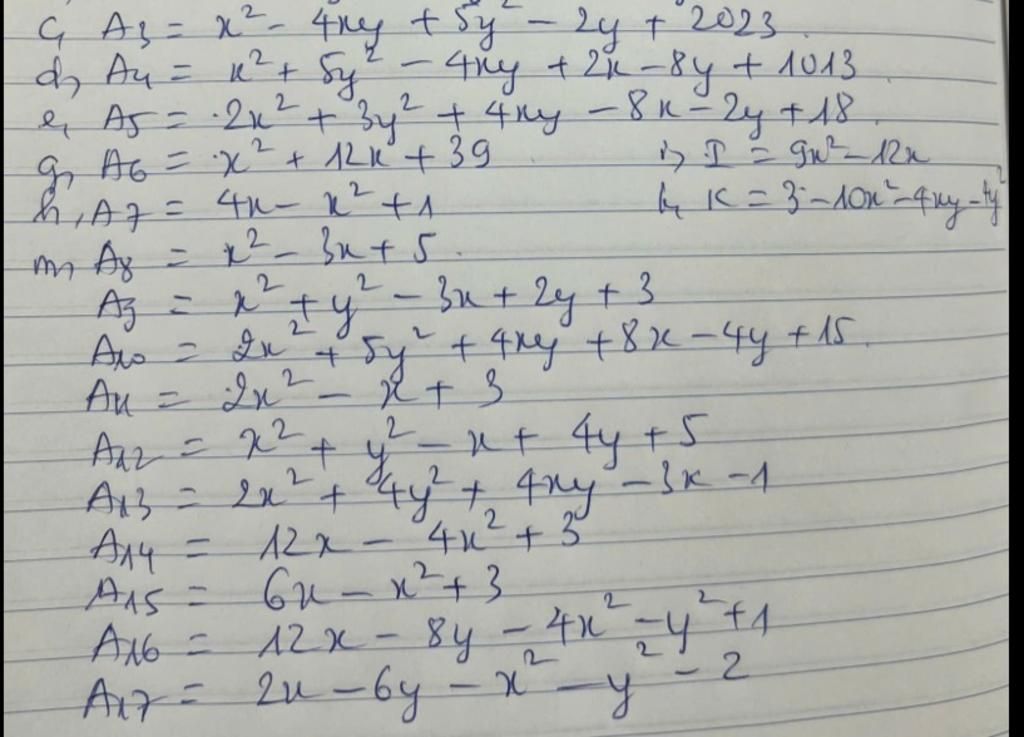 c, A3 = x² - 4xy + 5y² - 2y + 2023.
d, A4 = x² + 5y² - 4xy + 2x - 8y + 1013
e, A5 = 2x² + 3y² + 4xy - 8x - 2y + 18.
g, A6 = x² + 12x + 39 i, I = 9x² - 12x
h, A7 = 4x - x² + 1 k, K = 3 - 10x² - 4xy - 4y²
m, A8 = x² - 3x + 5.
A9 = x² + y² - 3x + 2y + 3
A10 = 2x² + 5y² + 4xy + 8x - 4y + 15.
A11 = 2x² - x + 3
A12 = x² + y² - x + 4y + 5
A13 = 2x² + 4y² + 4xy - 3x - 1
A14 = 12x - 4x² + 3
A15 = 6x - x² + 3
A16 = 12x - 8y - 4x² - y² + 1
A17 = 2x - 6y - x² - y² - 2